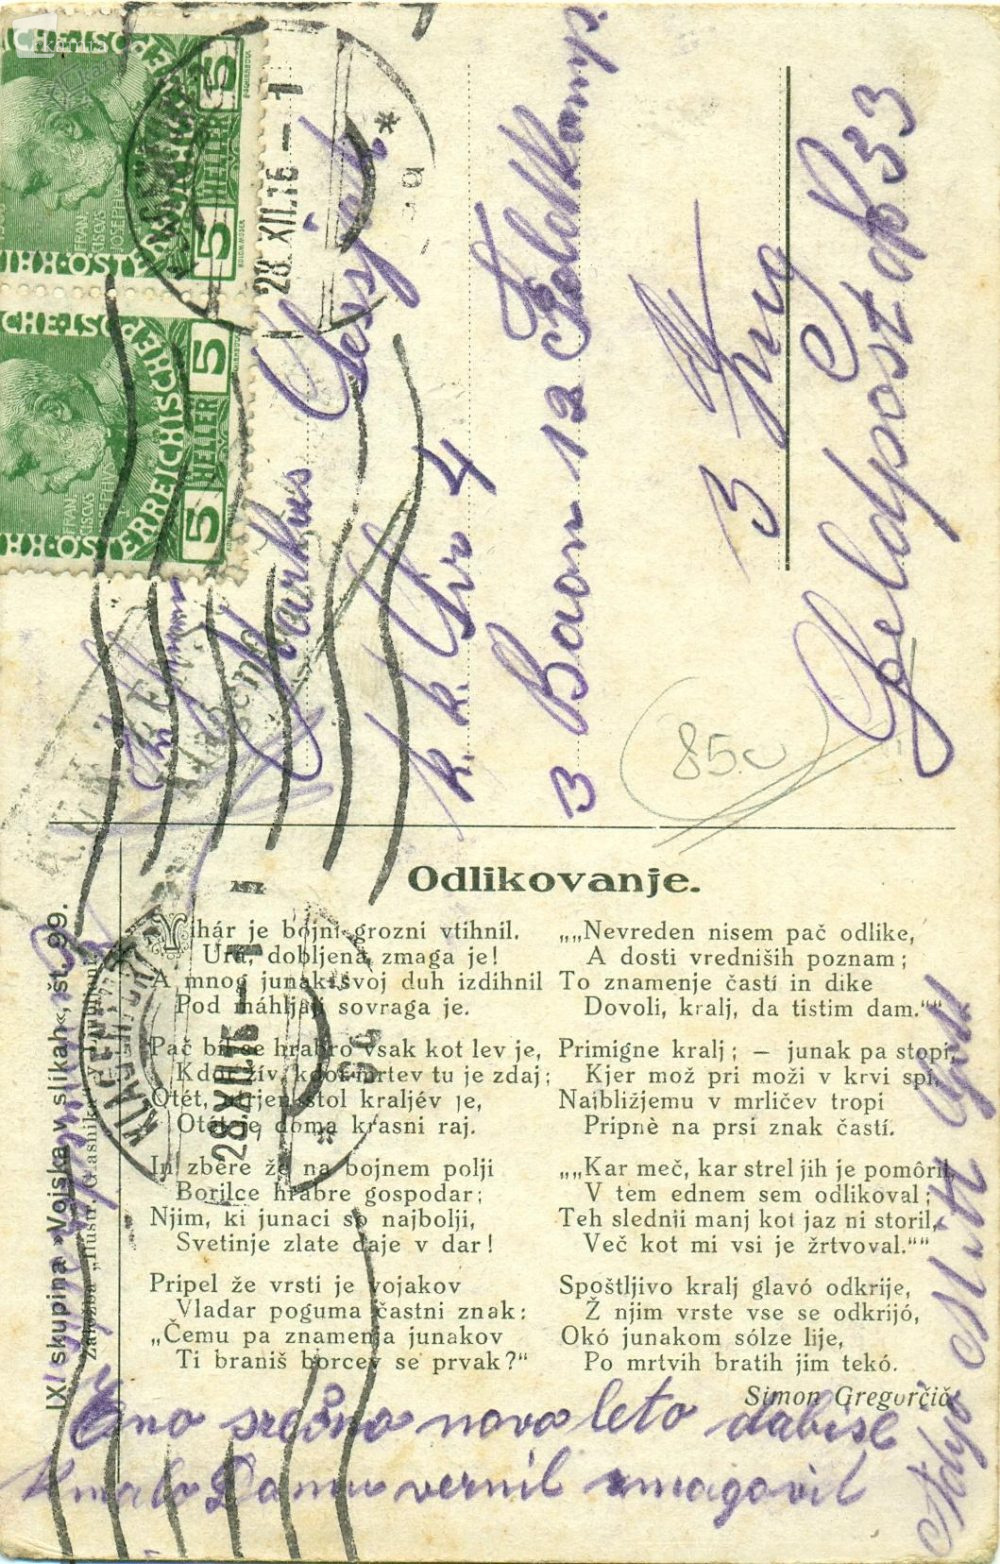 ÖSTERREICHISCHE POST
5 HELLER 5
FRAN-
CISCVS
JOSEPHVS
5 HELLER 5
FRAN-
CISCVS
JOSEPHVS
28 XII.15 – 1
Markus
k. k. 4
3 Baon 12 Feldkomp.
3 Zug
Feldpost 33
850
IX. skupina »Vojska v slikah«, št. 99.
Založba „Ilustr. Glasnika“
KLAGENFURT
28 XII 15
Odlikovanje.
Vihár je bojni grozni vtihnil.
Ura, dobljena zmaga je!
A mnog junak svoj duh izdihnil
Pod máhljaji sovraga je.
Pač bil se hrabro vsak kot lev je,
Kdor živ, kdor mrtev tu je zdaj;
Otét, utrjen stol kraljév je,
Otét je doma krasni raj.
In zbere že na bojnem polji
Borilce hrabre gospodar;
Njim, ki junaci so najbolji,
Svetinje zlate daje v dar!
Pripel že vrsti je vojakov
Vladar poguma častni znak:
„Čemu pa znamenja junakov
Ti braniš borcev se prvak?“
„„Nevreden nisem pač odlike,
A dosti vredniših poznam;
To znamenje častí in dike
Dovoli, kralj, da tistim dam.““
Primigne kralj; — junak pa stopi,
Kjer mož pri moži v krvi spí,
Naibližjemu v mrličev tropi
Pripnè na prsi znak častí.
„„Kar meč, kar strel jih je pomôril,
V tem ednem sem odlikoval;
Teh slednii manj kot jaz ni storil,
Več kot mi vsi je žrtvoval.““
Spoštljivo kralj glavó odkrije,
Ž njim vrste vse se odkrijó,
Okó junakom sólze lije,
Po mrtvih bratih jim tekó.
Simon Gregorčič
Eno srečno novo leto dabise
kmalo Domu vernil zmagovil